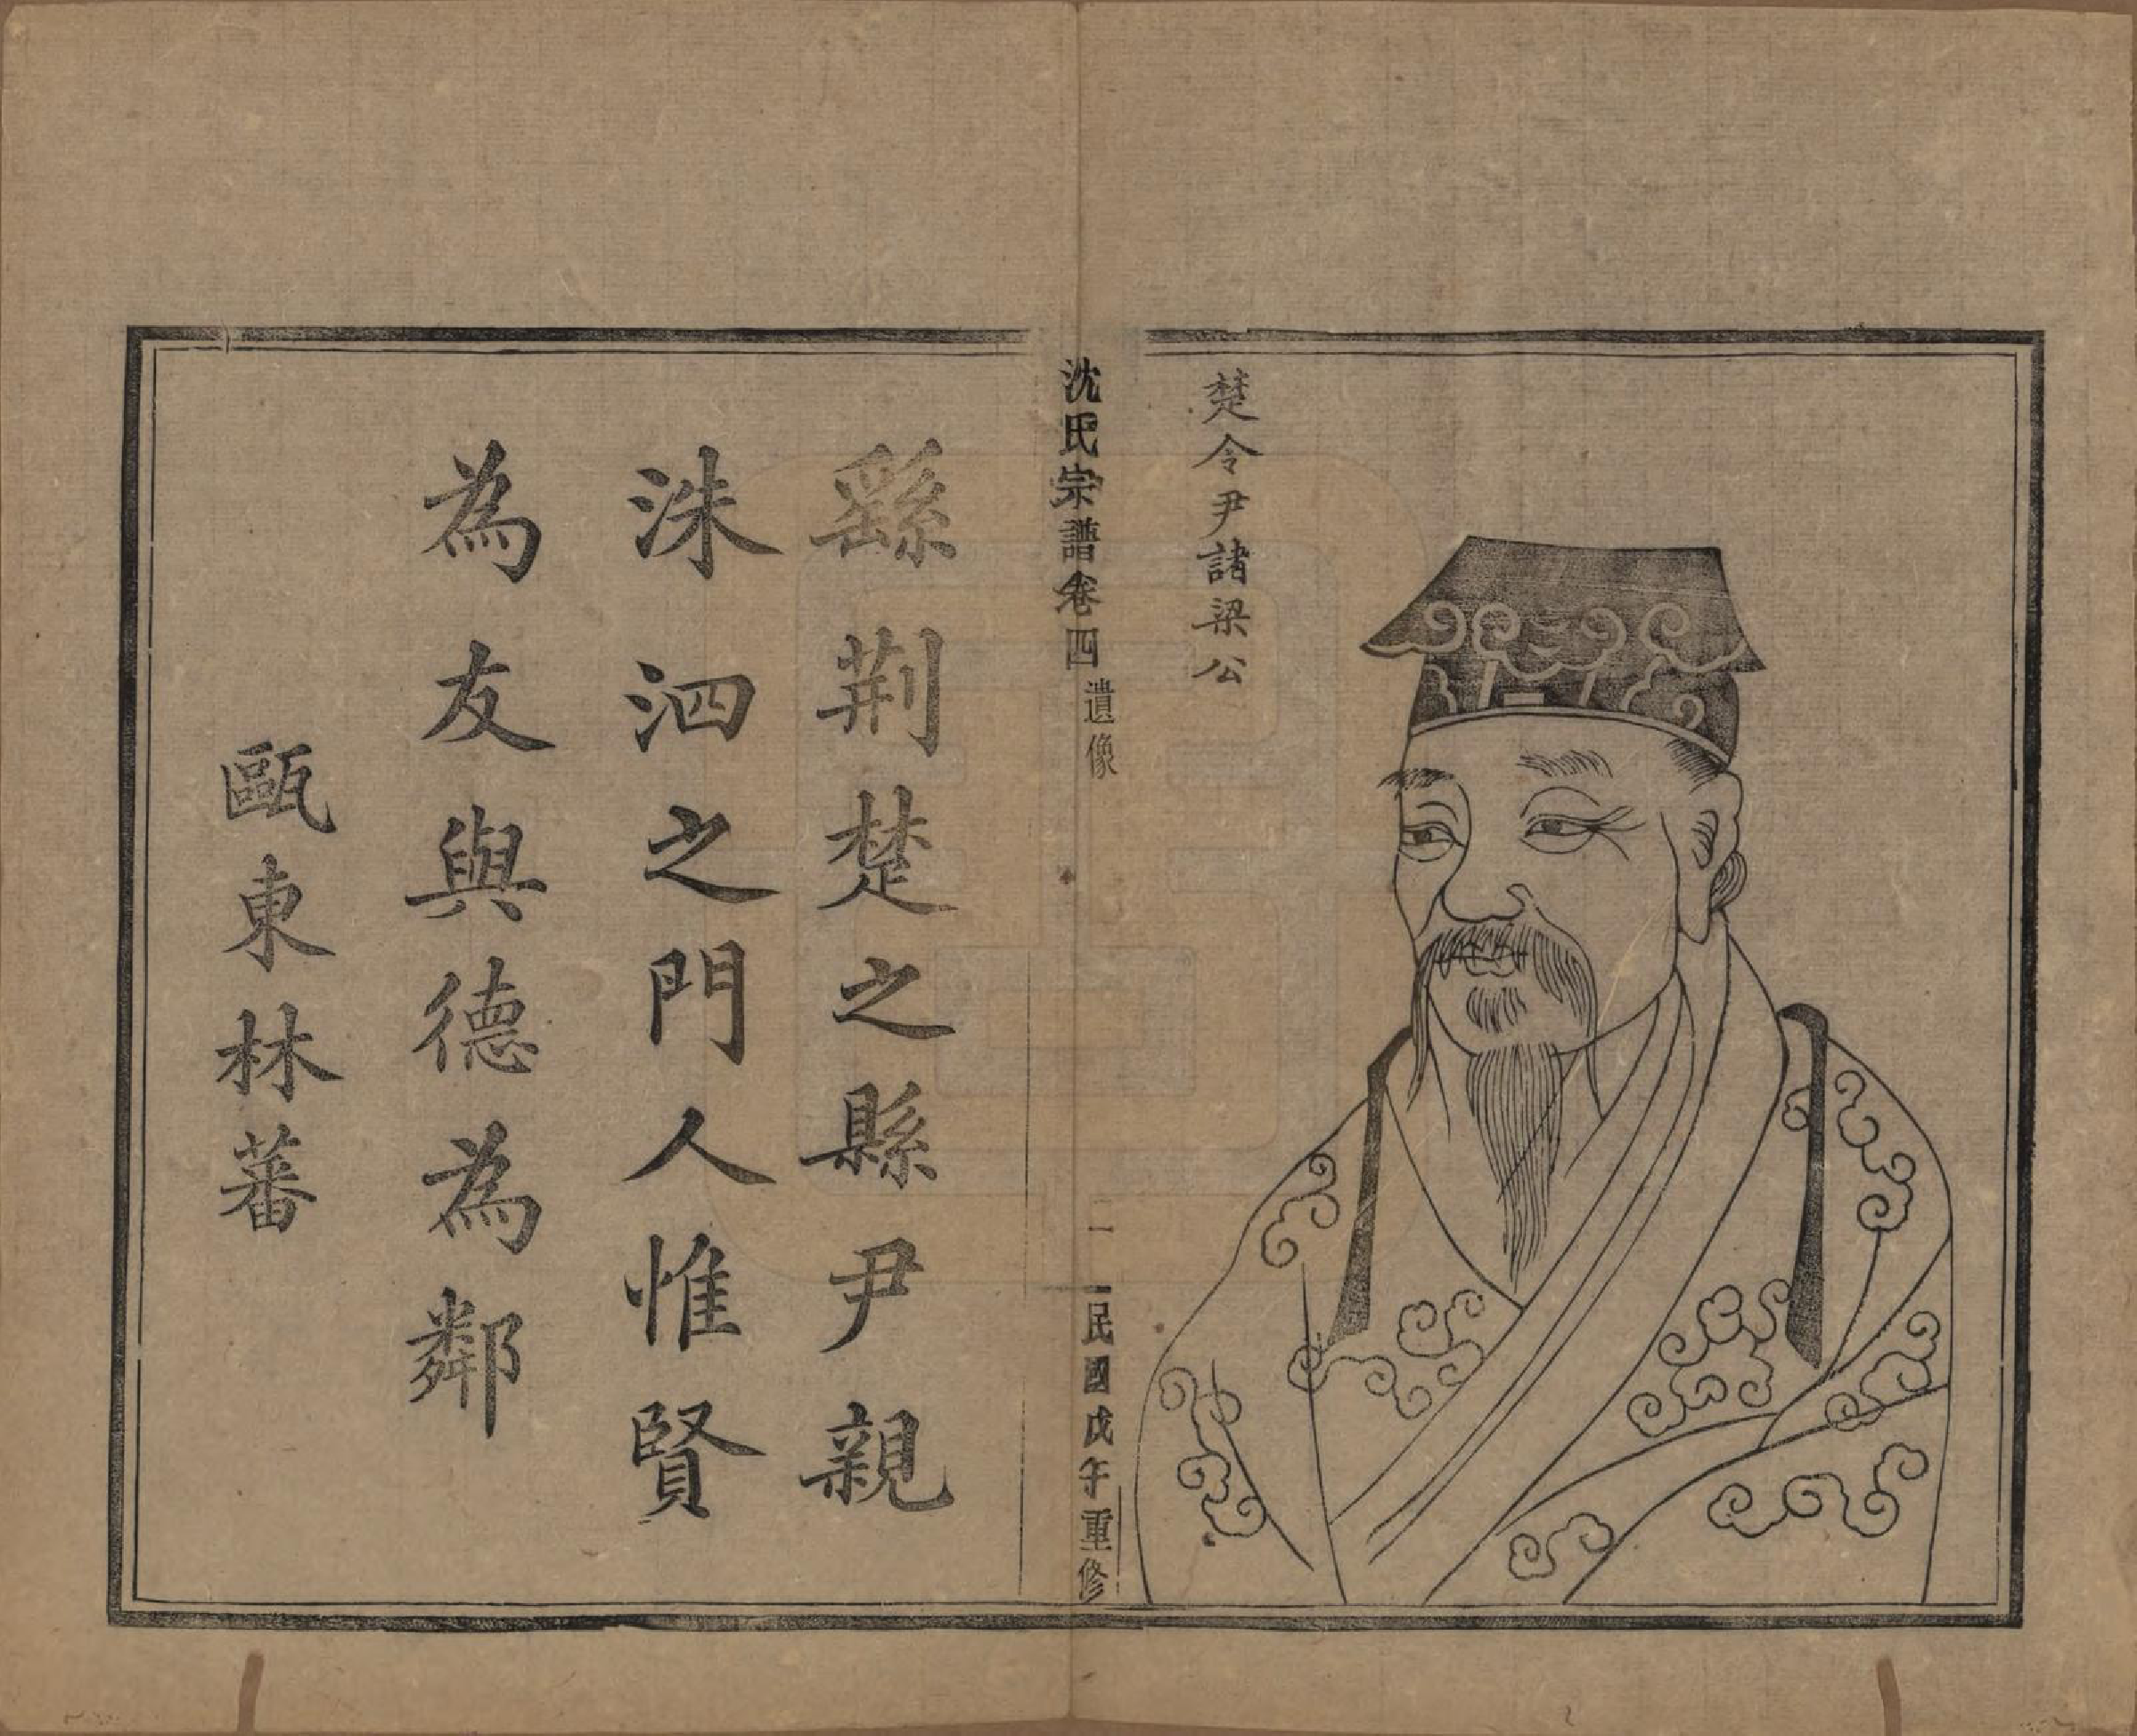 楚令尹諸梁公
沈氏宗譜卷四 遺像 二 民國戊午重修
繇荆楚之縣尹親
洙泗之門人惟賢
為友與德為鄰
甌東林蕃